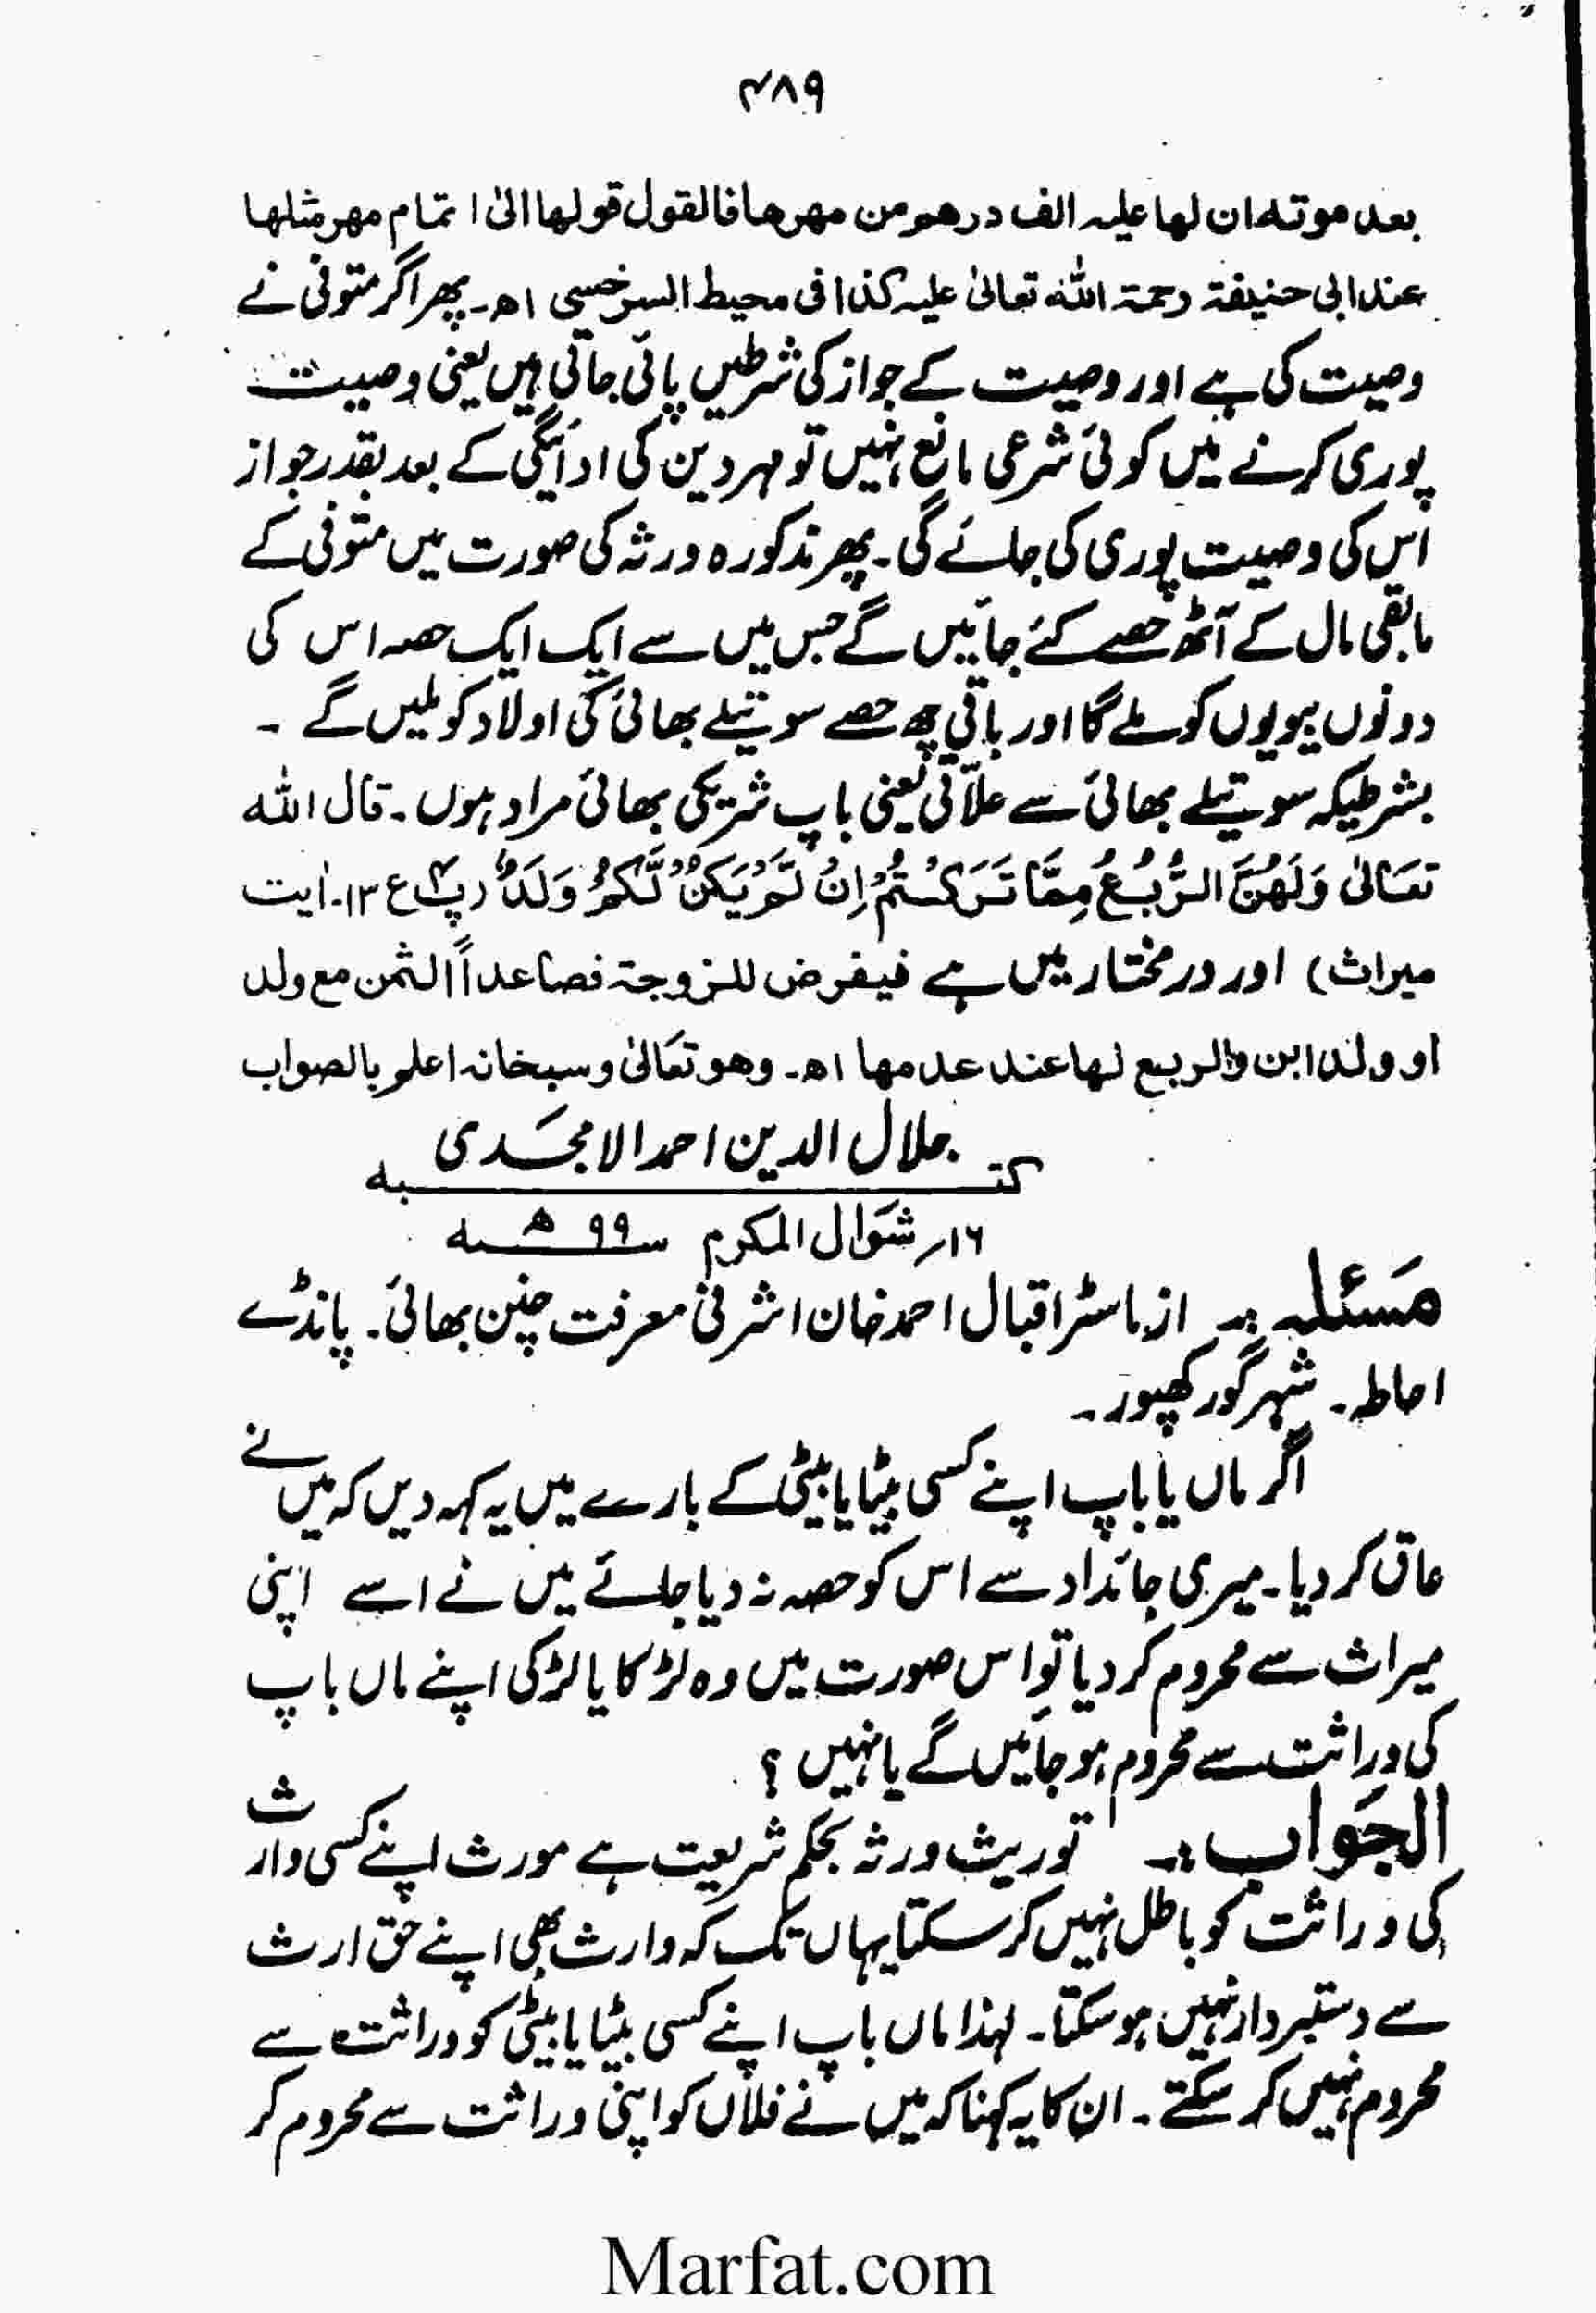 ۴۸۹
بعد موته ان لها علیہ الف درهم من مهرها فالقول قولها الیٰ اتمام مهر مثلها
عند ابی حنیفة رحمة اللہ تعالیٰ علیہ کذا فی محیط السرخسی ١ھ۔ پھر اگر متوفی نے
وصیت کی ہے اور وصیت کے جواز کی شرطیں پائی جاتی ہیں یعنی وصیت
پوری کرنے میں کوئی شرعی مانع نہیں تو مہر دین کی ادائیگی کے بعد بقدر جواز
اس کی وصیت پوری کی جائے گی۔ پھر مذکورہ ورثہ کی صورت میں متوفی کے
مابقی مال کے آٹھ حصے کئے جائیں گے جس میں سے ایک ایک حصہ اس کی
دونوں بیویوں کو ملے گا اور باقی چھ حصے سوتیلے بھائی کی اولاد کو ملیں گے ۔
بشرطیکہ سوتیلے بھائی سے علاّتی یعنی باپ شریکی بھائی مراد ہوں۔ قال اللہ
تعَالیٰ وَلَهُنَّ الرُّبُعُ مِمَّا تَرَكْتُمْ اِنْ لَّمْ يَكُنْ لَّكُمْ وَلَدٌ (پ۴ ع ۱۳۔ اٰیت
میراث) اور درمختار میں ہے فیفرض للزوجة فصاعداً الثمن مع ولد
او ولد ابن والربع لها عند عدمها ١ھ۔ وهو تعَالیٰ وسبحانہ اعلم بالصواب
جلال الدین احمد الامجَدی
کتبه
۱۶؍ شوّال المکرم سنه ۹۹ھ
مَسئلہ :۔ از ماسٹر اقبال احمد خان اشرفی معرفت چنن بھائی۔ پانڈے
احاطہ۔ شہر گورکھپور۔
اگر ماں یا باپ اپنے کسی بیٹا یا بیٹی کے بارے میں یہ کہہ دیں کہ میں نے
عاق کر دیا۔ میری جائداد سے اس کو حصہ نہ دیا جائے میں نے اسے اپنی
میراث سے محروم کر دیا تو اس صورت میں وہ لڑکا یا لڑکی اپنے ماں باپ
کی وراثت سے محروم ہو جائیں گے یا نہیں ؟
الجَواب :۔ توریث ورثہ بحکم شریعت ہے مورث اپنے کسی وارث
کی وراثت کو باطل نہیں کر سکتا یہاں تک کہ وارث بھی اپنے حق ارث
سے دستبردار نہیں ہو سکتا۔ لہذا ماں باپ اپنے کسی بیٹا یا بیٹی کو وراثت سے
محروم نہیں کر سکتے ۔ ان کا یہ کہنا کہ میں نے فلاں کو اپنی وراثت سے محروم کر
Marfat.com